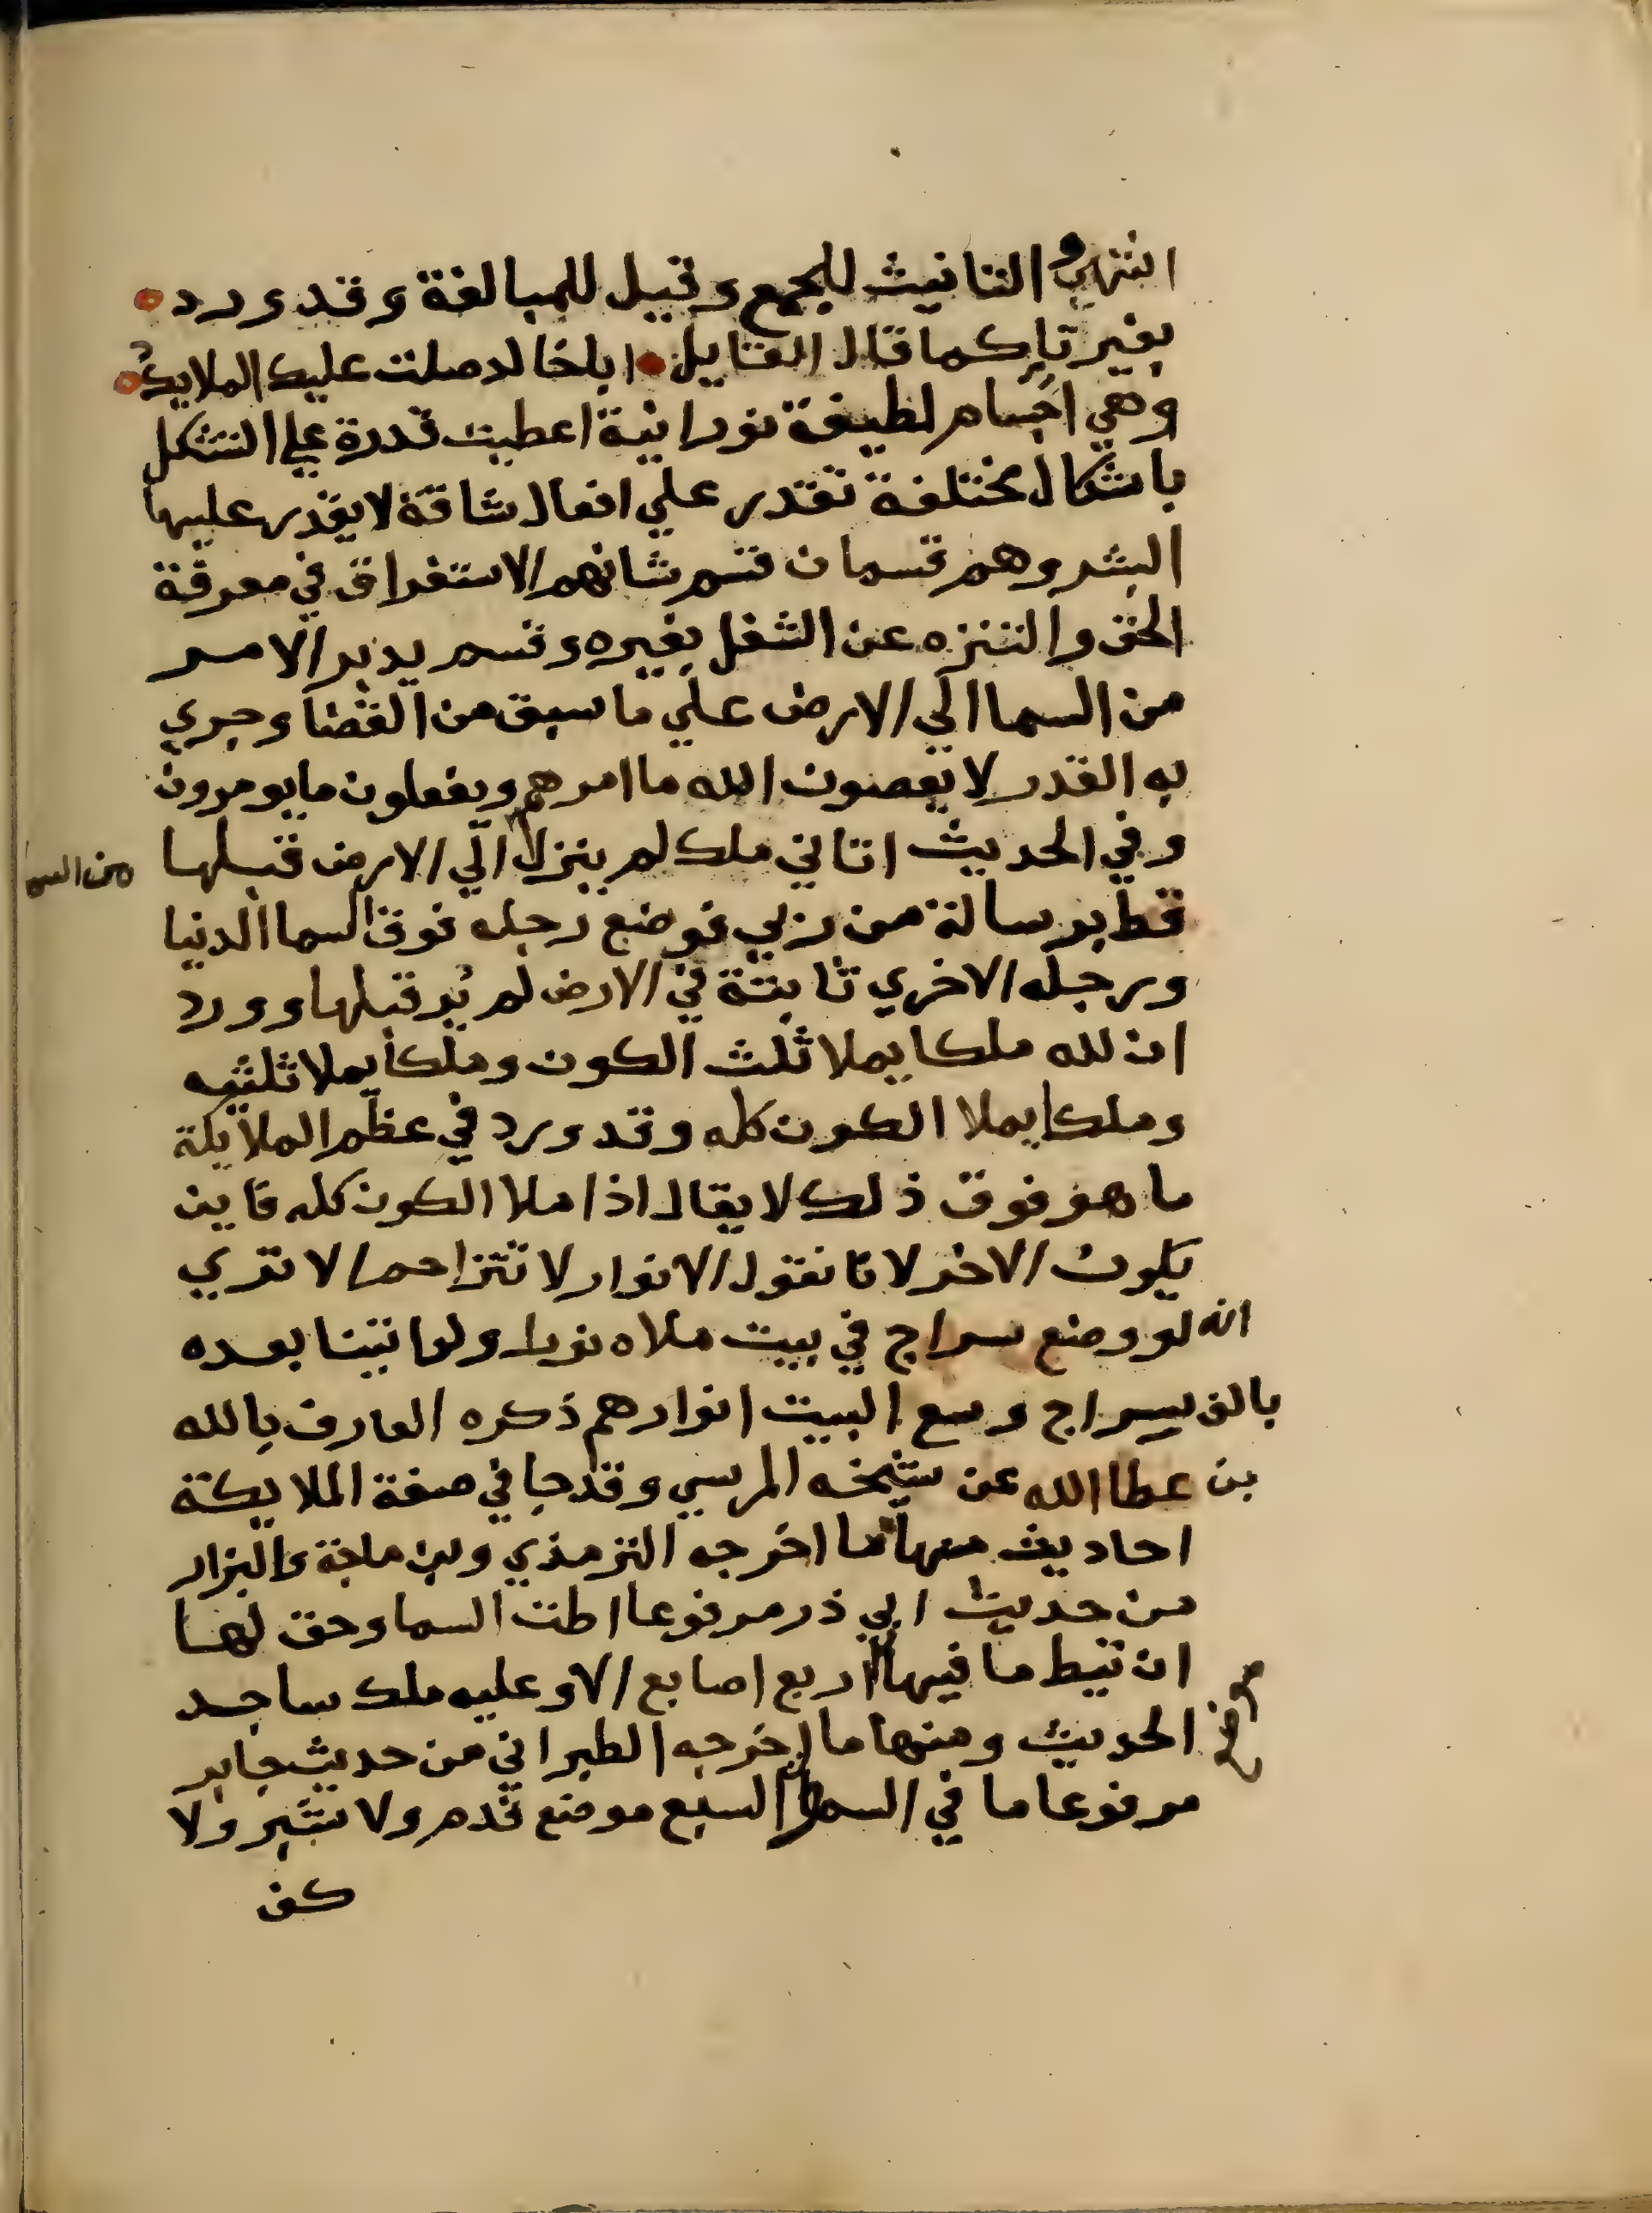 انتهي والتانيث للجمع وقيل للمبالغة وقد ورد
بغير تاء كما قال القايل ابا خالد صلت عليك الملايك
وهي اجسام لطيفة نورانية اعطيت قدرة علي التشكل
باشكال مختلفة تقدر علي افعال شاقة لا يقدر عليها
البشر وهم قسمان قسم شانهم الاستغراق في معرفة
الحق والتنزه عن الشغل بغيره وقسم يدبر الامر
من السما الي الارض علي ما سبق من القضا وجري
به القدر لا يعصون الله ما امرهم ويفعلون ما يومرون
وفي الحديث اتاني ملك لم ينزل الي الارض قبلها
من السما
قط برسالة من ربي فوضع رجله فوق السما الدنيا
ورجله الاخري ثابتة في الارض لم يُر قبلها وورد
ان لله ملكا يملا ثلث الكون وملكا يملا ثلثيه
وملكا يملا الكون كله وقد ورد في عظم الملايكة
ما هو فوق ذلك لا يقال اذا ملا الكون كله فاين
يكون الاخر لانا نقول الانوار لا تتزاحم الا تري
انه لو وضع سراج في بيت ملاه نورا ولو اتينا بعده
بالف سراج وسع البيت انوارهم ذكره العارف بالله
بن عطا الله عن شيخه المرسي وقد جا في صفة الملايكة
احاديث منها ما اخرجه الترمذي وبن ماجة والبزار
من حديث ابي ذر مرفوعا اطت السما وحق لها
ان تيط ما فيها اربع اصابع الا وعليه ملك ساجد
موضع
الحديث ومنها ما اخرجه الطبراني من حديث جابر
مرفوعا ما في السموات السبع موضع قدم ولا شبر ولا
كف